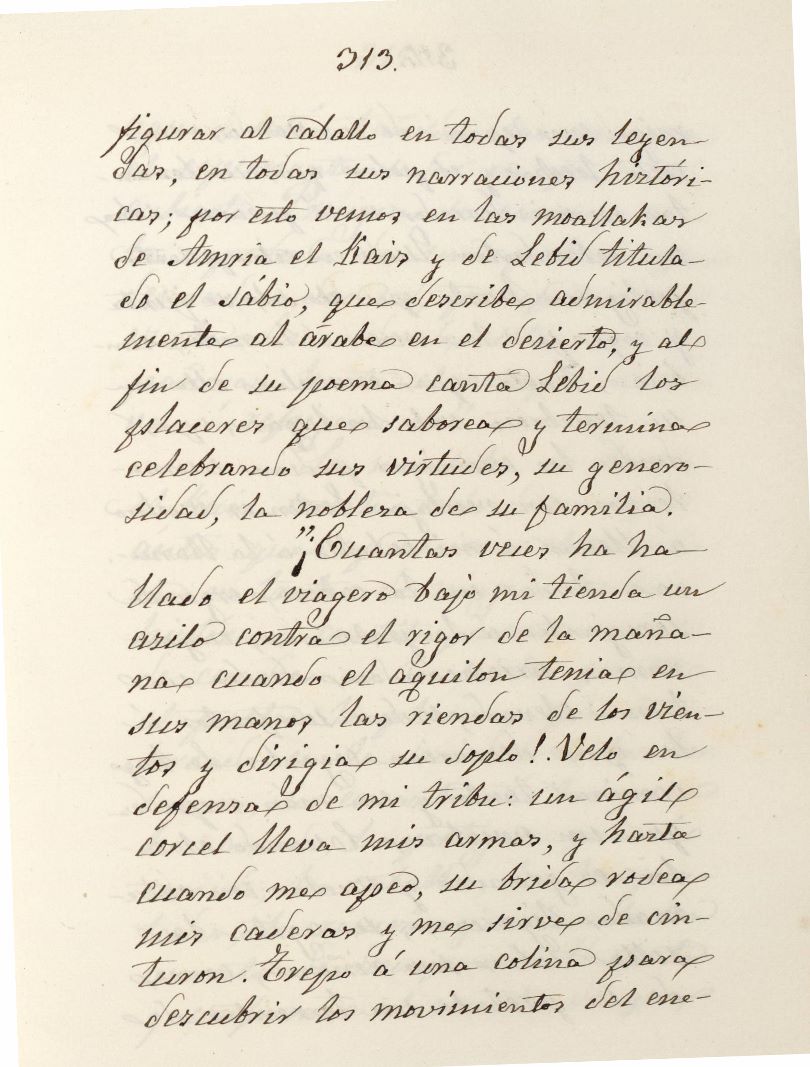 313.
figurar al caballo en todas sus leyen-
das, en todas sus narraciones históri-
cas; por esto vemos en las moallakas
de Amria el Kais y de Lebid titula-
do el sábio, que describe admirable-
mente al árabe en el desierto, y al
fin de su poema canta Lebid los
placeres que saborea y termina
celebrando sus virtudes, su genero-
sidad, la nobleza de su familia.
"¡Cuantas veces ha ha-
llado el viagero bajo mi tienda un
asilo contra el rigor de la maña-
na cuando el aquilon tenia en
sus manos las riendas de los vien-
tos y dirigia su soplo!. Velo en
defensa de mi tribu: un ágil
corcel lleva mis armas, y hasta
cuando me apeo, su brida rodea
mis caderas y me sirve de cin-
turon. Trepo á una colina para
descubrir los movimientos del ene-